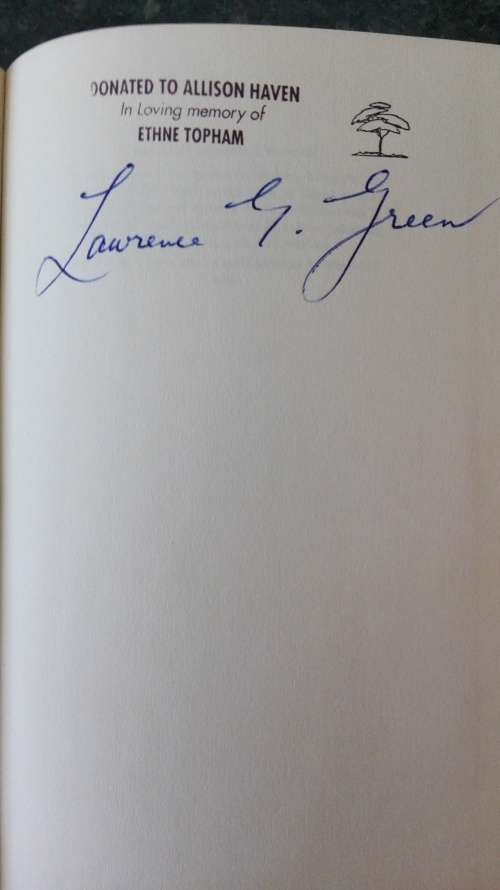 DONATED TO ALLISON HAVEN
In Loving memory of
ETHNE TOPHAM
Lawrence G. Green